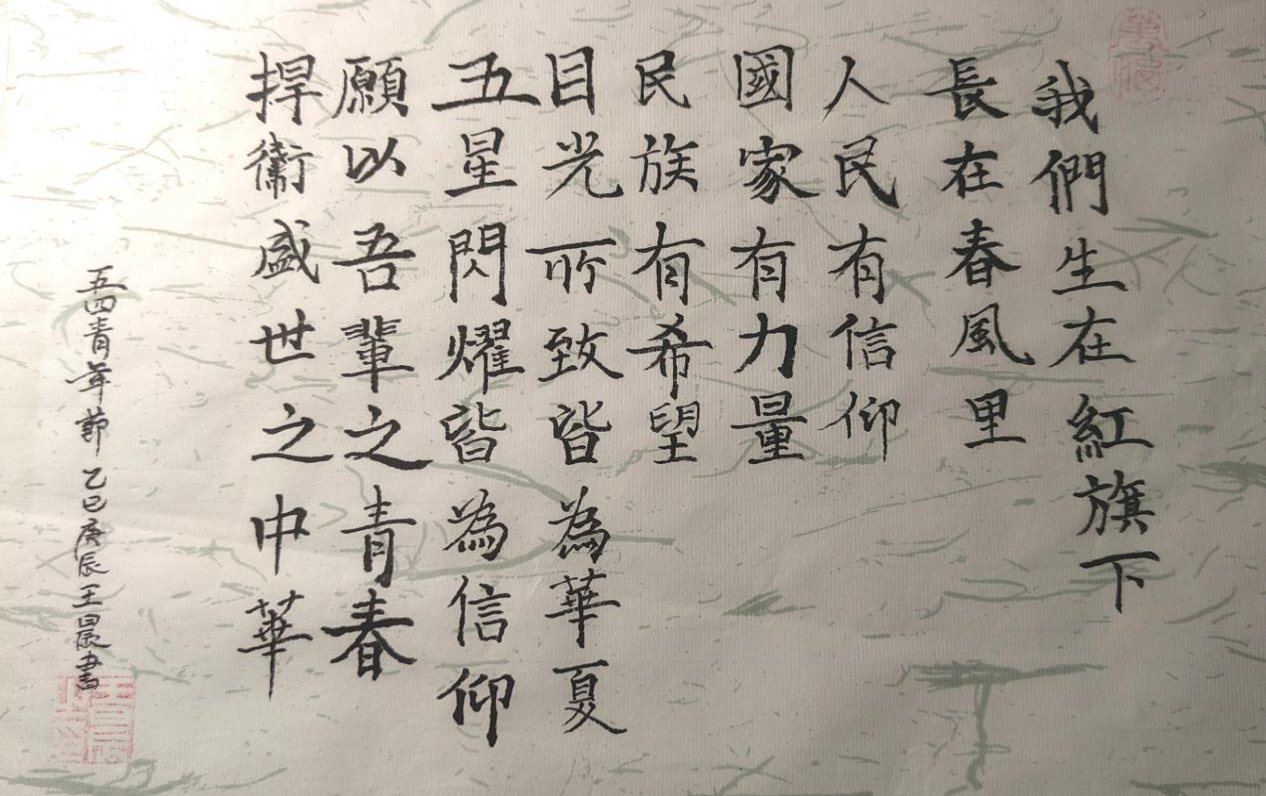 我們生在紅旗下
長在春風里
人民有信仰
國家有力量
民族有希望
目光所致皆為華夏
五星閃耀皆為信仰
願以吾輩之青春
捍衞盛世之中華
五四青年節乙巳庚辰王晨書